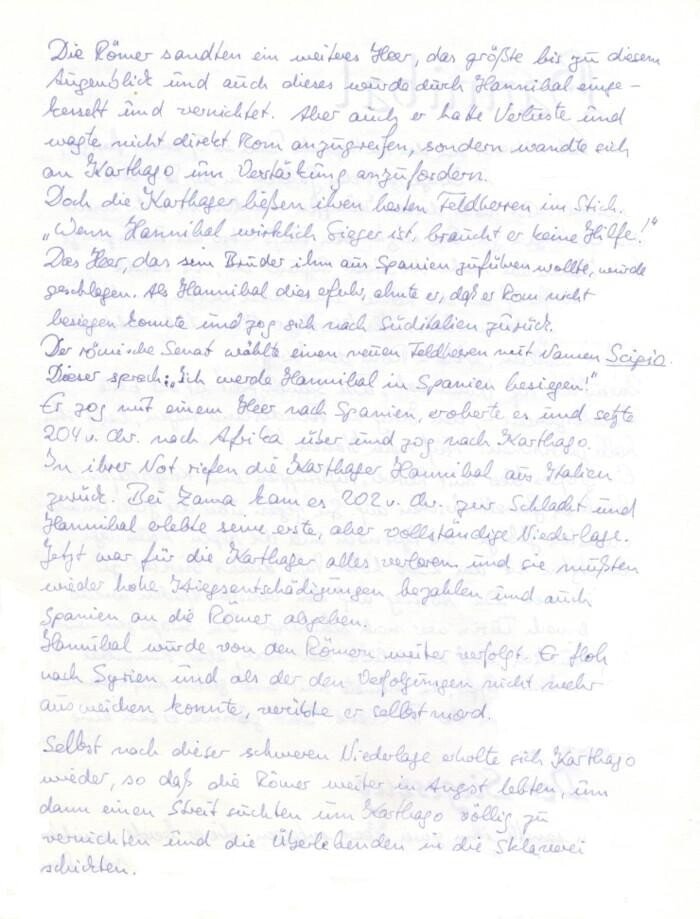 Die Römer sandten ein weiteres Heer, das größte bis zu diesem
Augenblick und auch dieses wurde durch Hannibal einge-
kesselt und vernichtet. Aber auch er hatte Verluste und
wagte nicht direkt Rom anzugreifen, sondern wandte sich
an Karthago um Verstärkung anzufordern.
Doch die Karthager ließen ihren besten Feldherren im Stich.
„Wenn Hannibal wirklich Sieger ist, braucht er keine Hilfe!"
Das Heer, das sein Bruder ihm aus Spanien zuführen wollte, wurde
geschlagen. Als Hannibal dies efuhr, ahnte er, daß er Rom nicht
besiegen konnte und zog sich nach Süditalien zurück.
Der römische Senat wählte einen neuen Feldherren mit Namen Scipio.
Dieser sprach: „Ich werde Hannibal in Spanien besiegen!"
Er zog mit einem Heer nach Spanien, eroberte es und setzte
204 v. Chr. nach Afrika über und zog nach Karthago.
In ihrer Not riefen die Karthager Hannibal aus Italien
zurück. Bei Zama kam es 202 v. Chr. zur Schlacht und
Hannibal erlebte seine erste, aber vollständige Niederlage.
Jetzt war für die Karthager alles verloren und sie mußten
wieder hohe Kriegsentschädigungen bezahlen und auch
Spanien an die Römer abgeben.
Hannibal wurde von den Römern weiter verfolgt. Er floh
nach Syrien und als der den Verfolgungen nicht mehr
ausweichen konnte, verübte er selbstmord.
Selbst nach dieser schweren Niederlage erholte sich Karthago
wieder, so daß die Römer weiter in Angst lebten, um
dann einen Streit suchten um Karthago völlig zu
vernichten und die Überlebenden in die Sklaverei
schickten.